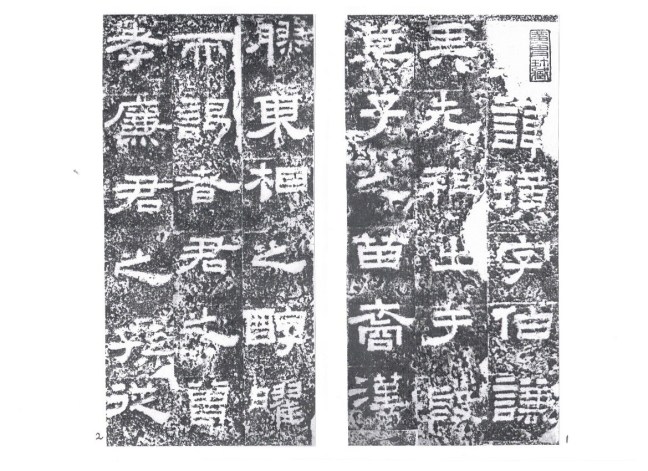 諱璜字伯謙
其先祖出于殷
箕子之苗裔漢
1
膠東相之醇曜
而謁者君之曾
孝廉君之孫從
2